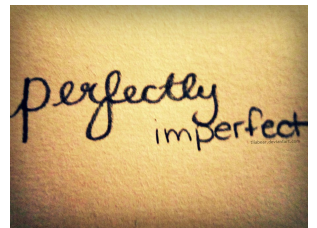 perfectly
imperfect